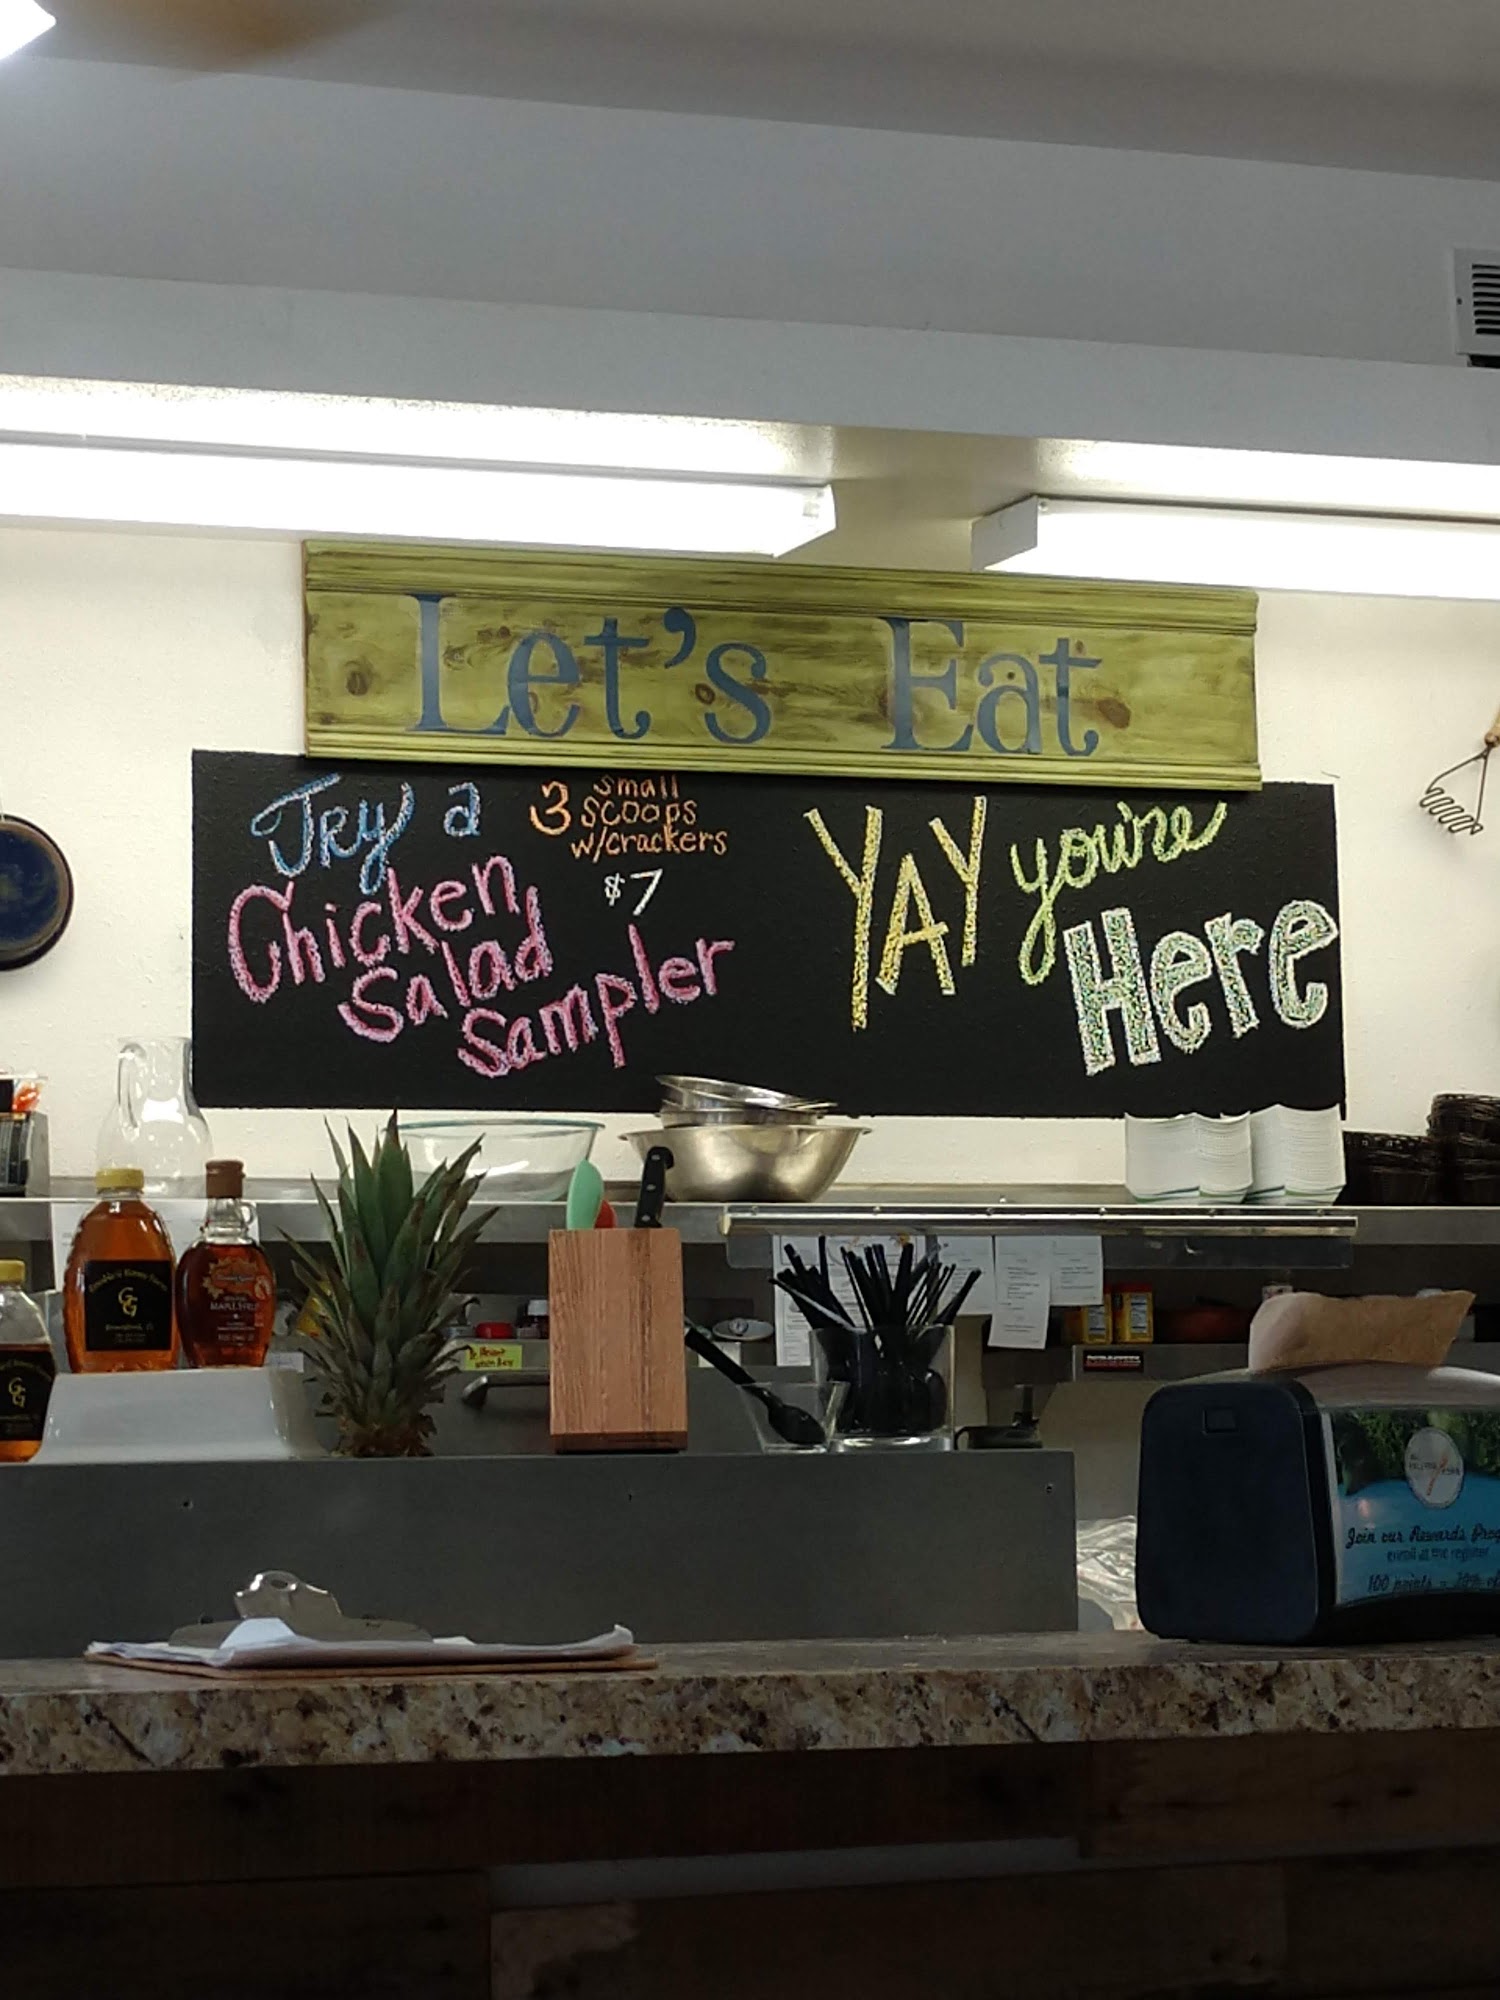 Let's Eat
Try a
Chicken
Salad
Sampler
3 small
scoops
w/crackers
$7
YAY you're
Here
GG
MAPLE SYRUP
GG
Join our Rewards
enroll at the register
100 points =